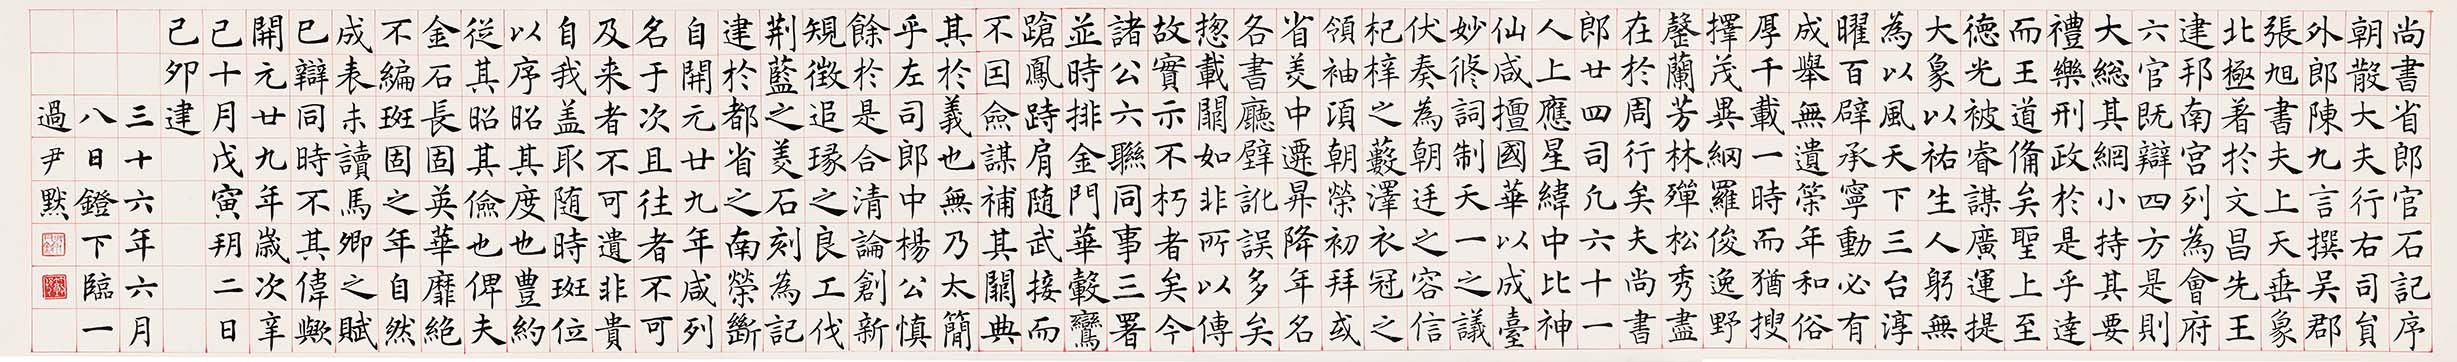 尚書省郎官石記序
朝散大夫行右司員
外郎陳九言撰吳郡
張旭書夫上天垂象
北極著於文昌先王
建邦南宮列為會府
六官既辯四方是則
大総其綱小持其要
禮樂刑政於是乎達
而王道俻矣聖上至
德光被睿謀廣運提
大象以祐生人躬無
為以風天下三台淳
曜百辟承寧動必有
成舉無遺策年和俗
厚千載一時而猶搜
擇茂異網羅俊逸野
罄蘭芳林殫松秀盡
在於周行矣夫尚書
郎廿四司凡六十一
人上應星緯中比神
仙咸擅國華以成臺
妙修詞制天一之議
伏奏為朝廷之容信
杞梓之藪澤衣冠之
領袖項朝榮初拜或
省美中遷昇降年名
各書廳壁訛誤多矣
揔載關如非所以傳
故實示不朽者矣今
諸公六聯同事三署
並時排金門華轂鸞
蹌鳳跱肩随武接而
不因僉謀補其關典
其於義也無乃太簡
乎左司郎中楊公慎
餘於是合清論創新
規徵追琢之良工伐
荆藍之美石刻為記
建於都省之南榮斷
自開元廿九年咸列
名于次且往者不可
及来者不可遺非貴
自我盖取随時班位
以序昭其度也豊約
從其昭其儉也俾夫
金石長固英華靡絶
不編班固之年自然
成表未讀馬卿之賦
已辯同時不其偉歟
開元廿九年歲次辛
已十月戊寅朔二日
己卯建
三十六年六月
八日鐙下臨一
過尹默